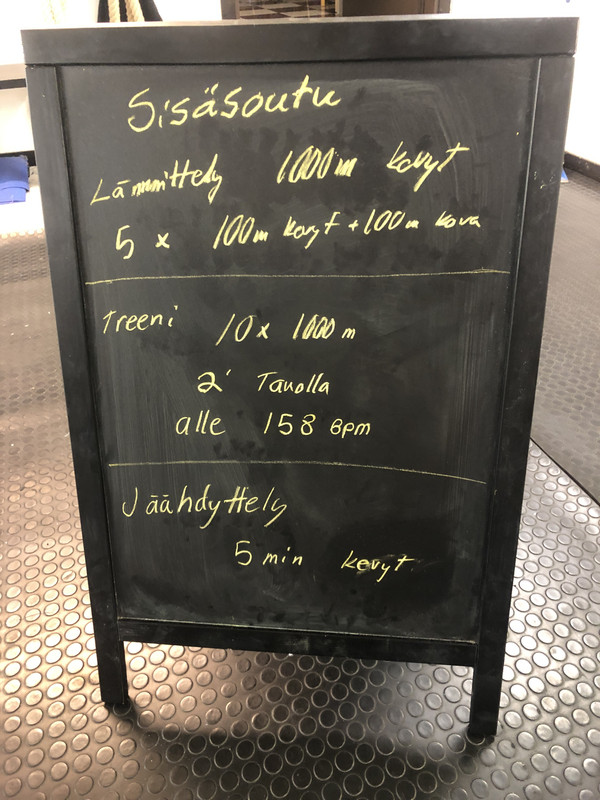 Sisäsoutu
Lämmittely 1000m kevyt
5 x 100m kevyt + 100m kova
Treeni 10 x 1000 m
2' Tauolla
alle 158 BPM
Jäähdyttely
5 min kevyt